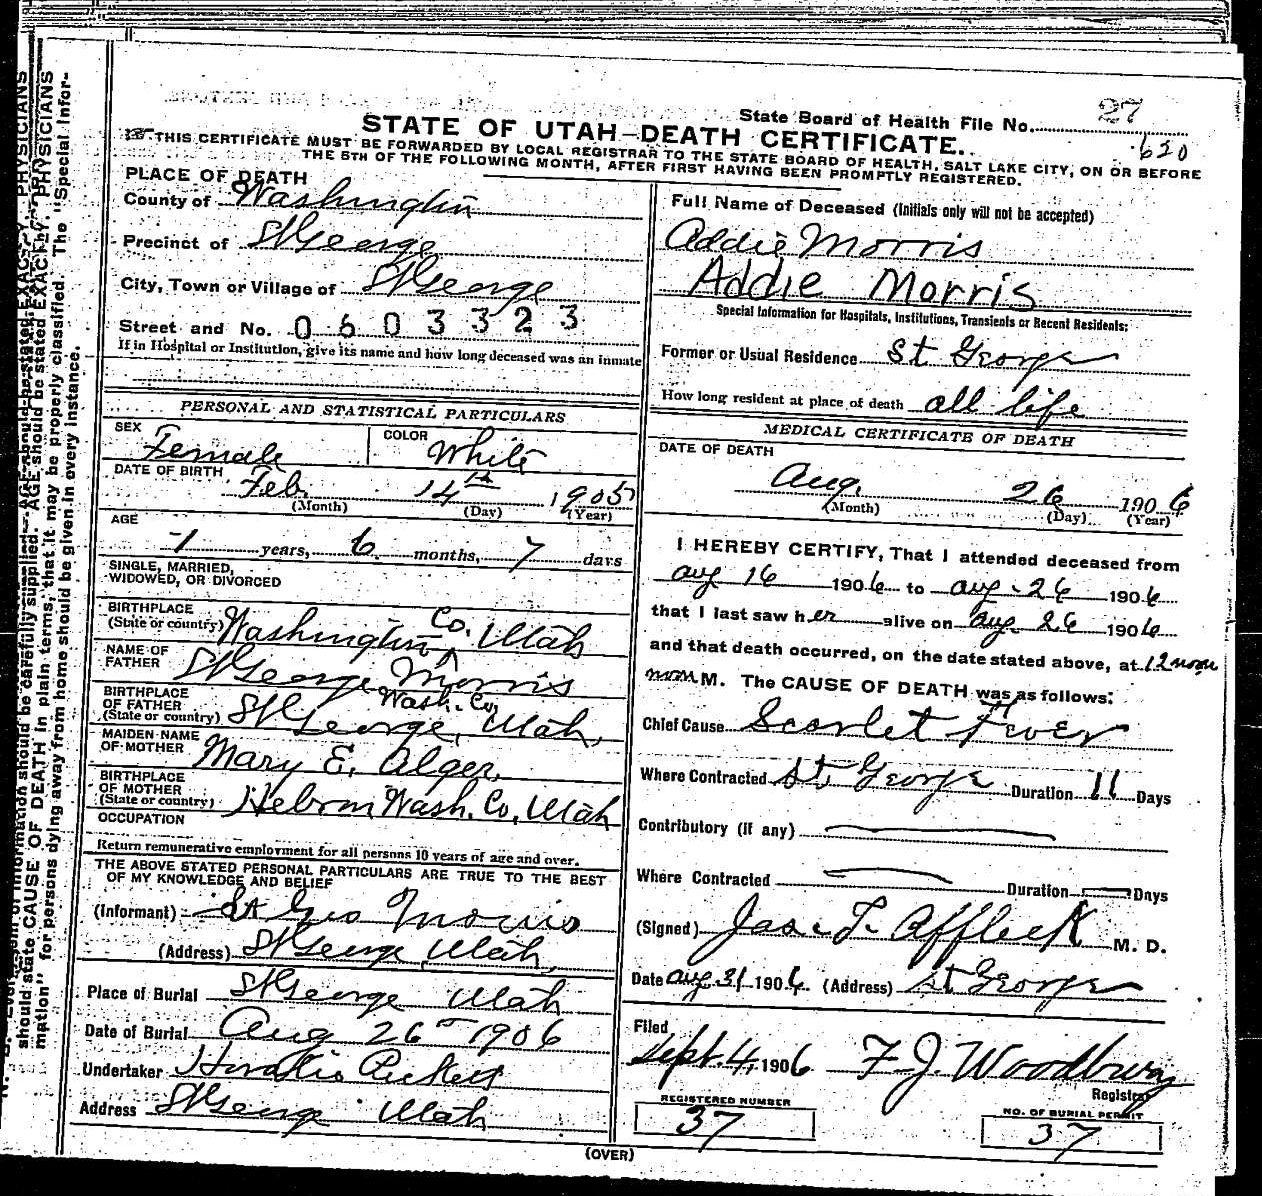 State Board of Health File No. 27
620
STATE OF UTAH—DEATH CERTIFICATE.
THIS CERTIFICATE MUST BE FORWARDED BY LOCAL REGISTRAR TO THE STATE BOARD OF HEALTH, SALT LAKE CITY, ON OR BEFORE
THE 5TH OF THE FOLLOWING MONTH, AFTER FIRST HAVING BEEN PROMPTLY REGISTERED.
PLACE OF DEATH
County of Washington
Precinct of St George
City, Town or Village of St George
Street and No. 0603323
If in Hospital or Institution, give its name and how long deceased was an inmate
PERSONAL AND STATISTICAL PARTICULARS
SEX Female COLOR White
DATE OF BIRTH Feb. 14th 1905
(Month) (Day) (Year)
AGE
1 years, 6 months, 7 days
SINGLE, MARRIED,
WIDOWED, OR DIVORCED
BIRTHPLACE
(State or country) Washington Co. Utah
NAME OF
FATHER St George Morris
BIRTHPLACE
OF FATHER
(State or country) St George, Wash. Co, Utah,
MAIDEN NAME
OF MOTHER Mary E. Alger,
BIRTHPLACE
OF MOTHER
(State or country) Hebron Wash. Co, Utah
OCCUPATION
Return remunerative employment for all persons 10 years of age and over.
THE ABOVE STATED PERSONAL PARTICULARS ARE TRUE TO THE BEST
OF MY KNOWLEDGE AND BELIEF
(Informant) St Geo Morris
(Address) St George, Utah,
Place of Burial St George Utah
Date of Burial Aug 26th 1906
Undertaker Horatio Pickett
Address St George Utah
Full Name of Deceased (Initials only will not be accepted)
Addie Morris
Addie Morris
Special Information for Hospitals, Institutions, Transients or Recent Residents:
Former or Usual Residence St George
How long resident at place of death all life
MEDICAL CERTIFICATE OF DEATH
DATE OF DEATH
Aug. 26 1906
(Month) (Day) (Year)
I HEREBY CERTIFY, That I attended deceased from
Aug 16 1906 to Aug. 26 1906
that I last saw her alive on Aug 26 1906
and that death occurred, on the date stated above, at 12 noon
M. The CAUSE OF DEATH was as follows:
Chief Cause Scarlet Fever
Where Contracted St. George Duration 11 Days
Contributory (if any)
Where Contracted Duration Days
(Signed) Jas. T. Affleck M. D.
Date Aug 31 1906. (Address) St George
Filed
Sept. 4, 1906 F J Woodbury
Registrar
REGISTERED NUMBER
37
NO. OF BURIAL PERMIT
37
(OVER)
should state CAUSE OF DEATH in plain terms, that it may be properly classified. The "Special Infor-
mation" for persons dying away from home should be given in every instance.